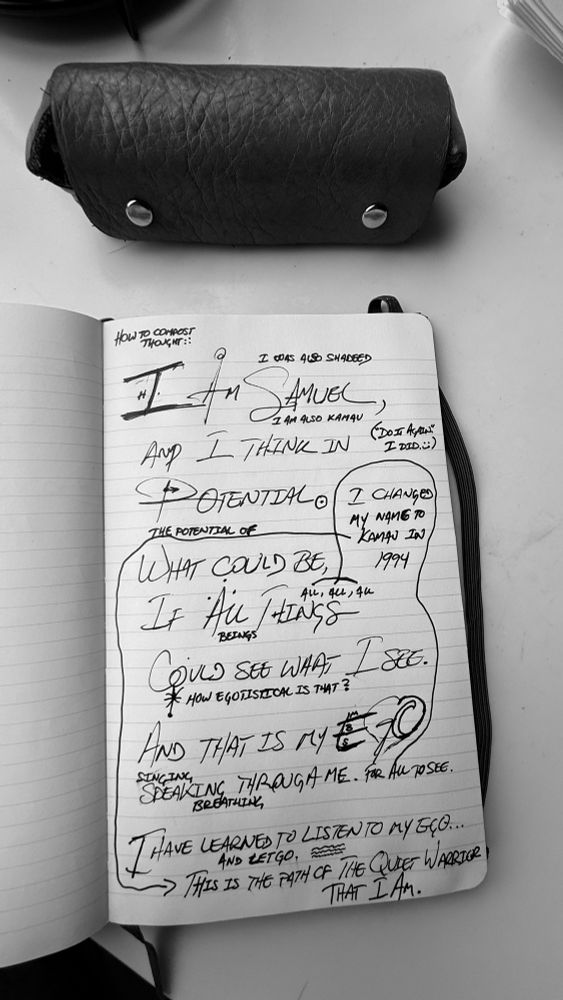 HOW TO COMPOST
THOUGHT::
I WAS ALSO SHADEED
I AM SAMUEL,
I AM ALSO KAMAU
AND I THINK IN
("DO IT AGAIN"
I DID. :))
POTENTIAL.
I CHANGED
MY NAME TO
KAMAU IN
1994
THE POTENTIAL OF
WHAT COULD BE,
ALL, ALL, ALL
IF ALL THINGS
BEINGS
COULD SEE WHAT I SEE.
* HOW EGOTISTICAL IS THAT?
AND THAT IS MY EGO
SINGING
SPEAKING THROUGH ME. FOR ALL TO SEE.
BREATHING
I HAVE LEARNED TO LISTEN TO MY EGO...
AND LET GO.
THIS IS THE PATH OF THE QUIET WARRIOR
THAT I AM.